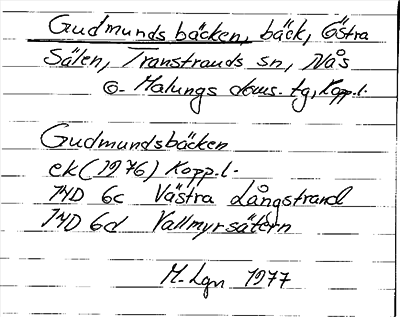 Gudmundsbäcken, bäck, Östra
Sälen, Transtrands sn, Nås
o. Malungs doms. tg, Kopp.l.
Gudmundsbäcken
ek (1976) Kopp.l.
13D 6c Västra Långstrand
13D 6d Vallmyrsätern
M. Lgn 1977